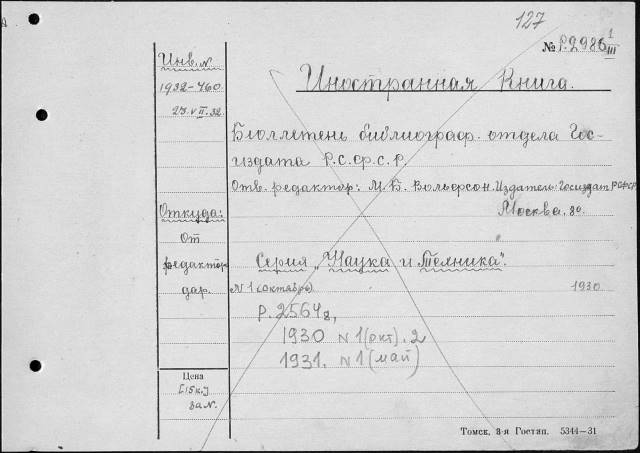 127
№ Р.2986 1/III
Инв. №
1932-460
23.VII.32
Иностранная Книга.
Бюллетень библиограф. отдела Гос-
издата Р.С.Ф.С.Р.
Отв. редактор: М.Б. Вольфсон. Издатель: Госиздат РСФСР
Москва, 30.
Откуда:
От
редактор
дар.
Серия "Наука и Техника".
N 1 (октябрь) 1930
Р. 2564
1930 N 1 (окт). 2
1931. N 1 (май)
Цена
[15к.]
за N.
Томск, 3-я Гостип. 5344—31